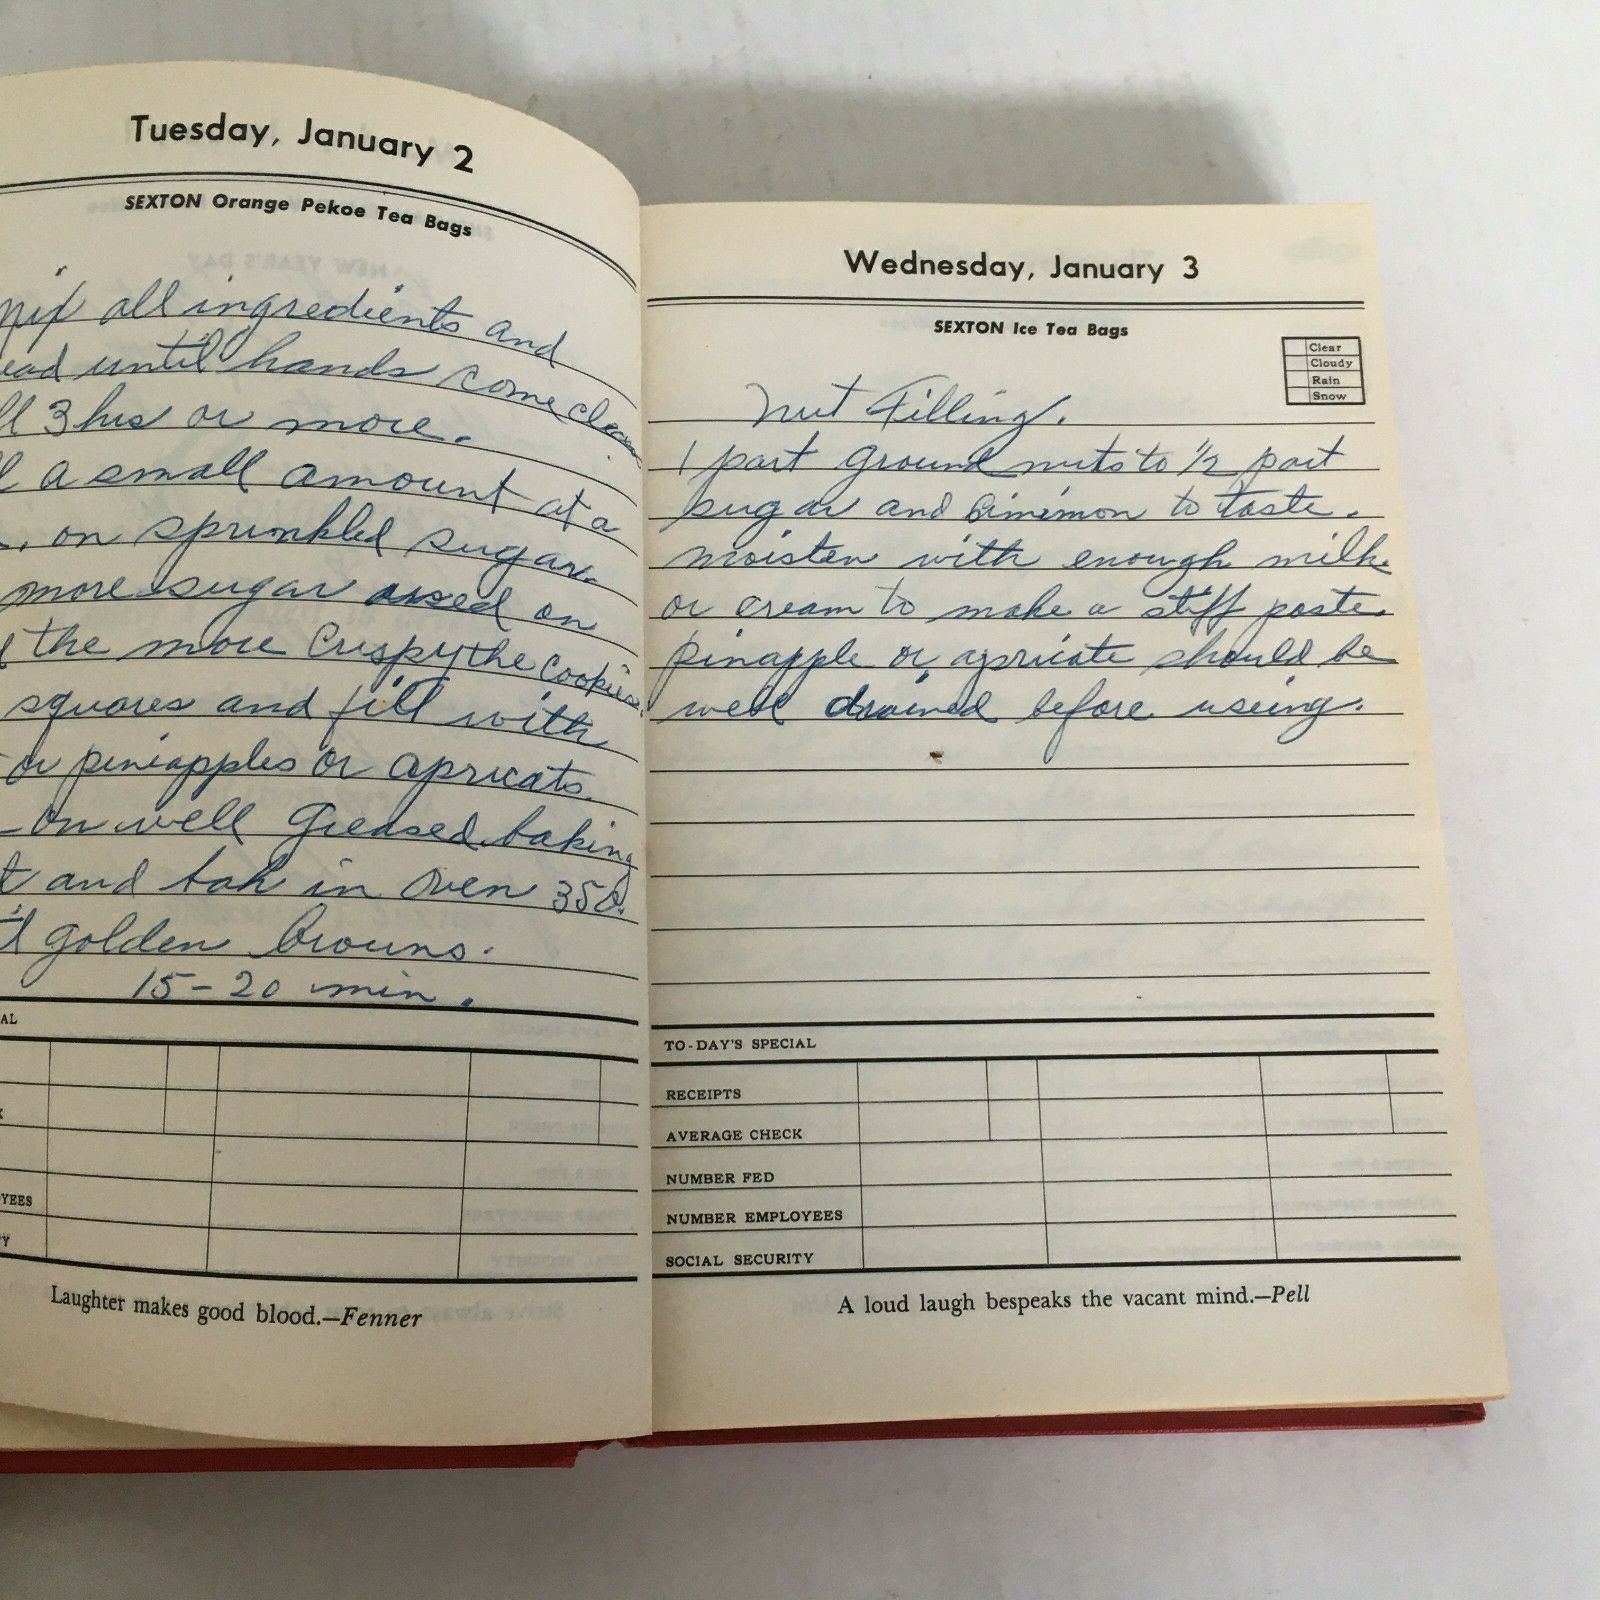 Tuesday, January 2
SEXTON Orange Pekoe Tea Bags
mix all ingredients and
ead until hands come clean
ll 3 hrs or more.
l a small amount at a
. on sprinkled sugar.
more sugar used on
the more Crispy the cookies.
squares and fill with
or pineapples or apricats.
on well Greased baking
t and bak in Oven 350.
'l golden browns.
15-20 min.
AL
K
YEES
TY
Laughter makes good blood.—Fenner
Wednesday, January 3
SEXTON Ice Tea Bags
Clear
Cloudy
Rain
Snow
Nut Filling.
1 part ground nuts to 1/2 part
sugar and Cinimon to taste.
moisten with enough milk
or cream to make a stiff paste.
pinapple or apricate should be
well drained before useing.
TO-DAY'S SPECIAL
RECEIPTS
AVERAGE CHECK
NUMBER FED
NUMBER EMPLOYEES
SOCIAL SECURITY
A loud laugh bespeaks the vacant mind.—Pell